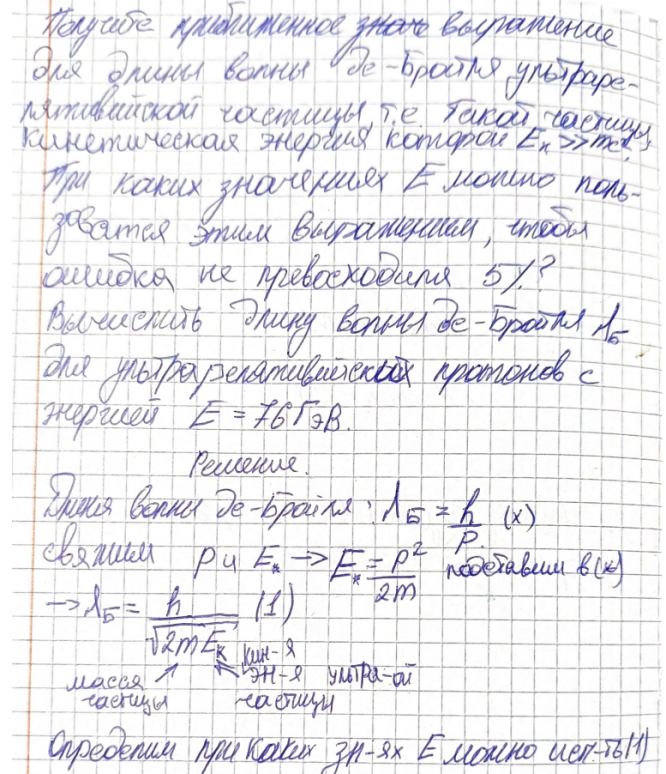 Получите приближенное выражение
для длины волны де-Бройля ультраре-
лятивийской частицы, т.е. такой частицы,
кинетическая энергия которой Eк >> mc².
При каких значениях E можно поль-
зоватся этим выражением, чтобы
ошибка не превосходила 5%?
Вычислить длину волны де-Бройля λБ
для ультрарелятивийских протонов с
энергией E = 76 ГэВ.
Решение.
Длина волны де-Бройля: λБ = h/p (x)
свяжим p и Eк → Eк = p²/2m подставим в (x)
→ λБ = h/√2mEк (1)
кин-я
масса эн-я ультра-ой
частицы частицы
Определим при каких зн-ях E можно исп-ть (1)